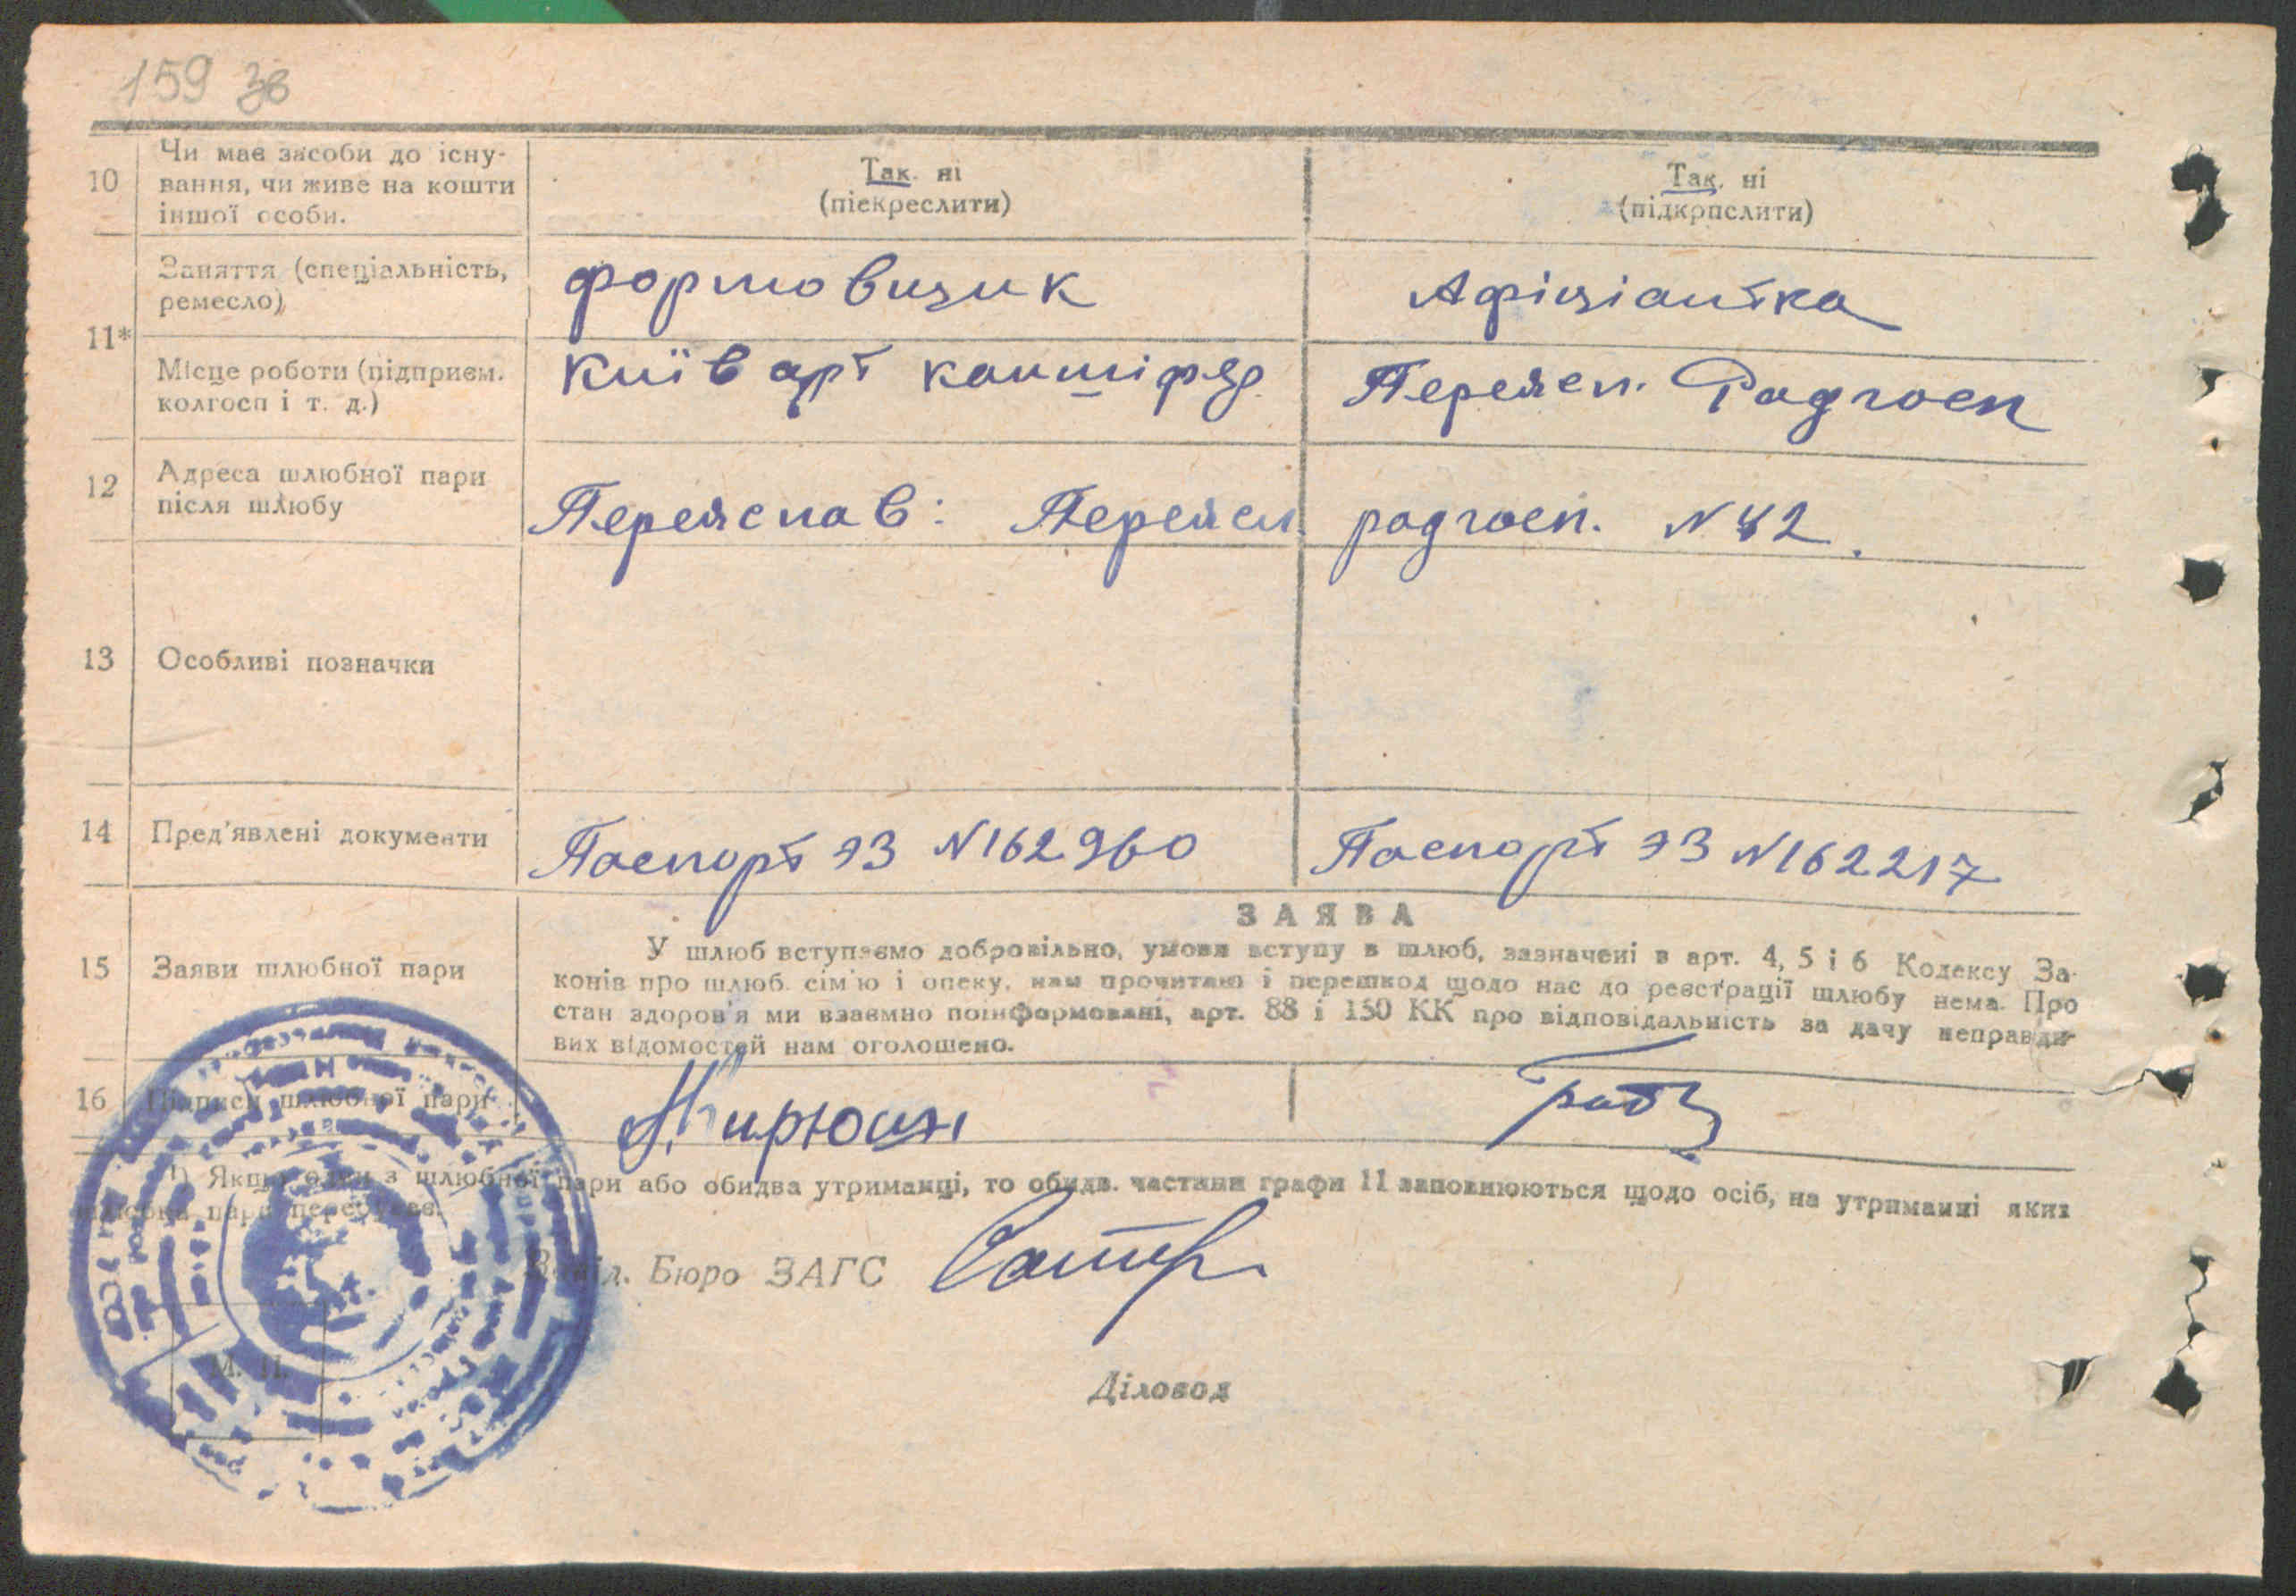 159 зв
10
Чи має засоби до існу-
вання, чи живе на кошти
іншої особи.
Так. ні
(піекреслити)
Так, ні
(підкрпслити)
11*
Заняття (спеціальність,
ремесло)
формовщик
Афіціантка
Місце роботи (підприєм.
колгосп і т. д.)
Київ арт
Переясл. Радгосп
12
Адреса шлюбної пари
після шлюбу
Переяслав: Переясл. радгосп. N 42.
13
Особливі позначки
14
Пред'явлені документи
Паспорт ЭЗ N162960
Паспорт ЭЗ N162217
15
Заяви шлюбної пари
ЗАЯВА
У шлюб вступаємо добровільно, умови вступу в шлюб, зазначені в арт. 4, 5 і 6 Кодексу За-
конів про шлюб. сім'ю і опеку, нам прочитано і перешкод щодо нас до реєстрації шлюбу нема. Про
стан здоров'я ми взаємно поінформовані, арт. 88 і 150 КК про відповідальність за дачу неправди-
вих відомостей нам оголошено.
16
Підписи шлюбної пари
¹) Якщо один з шлюбної пари або обидва утриманці, то обидв. частини графи 11 заповнюються щодо осіб, на утриманні яких
шлюбна пара перебуває.
Завід. Бюро ЗАГС
М. П.
Діловод